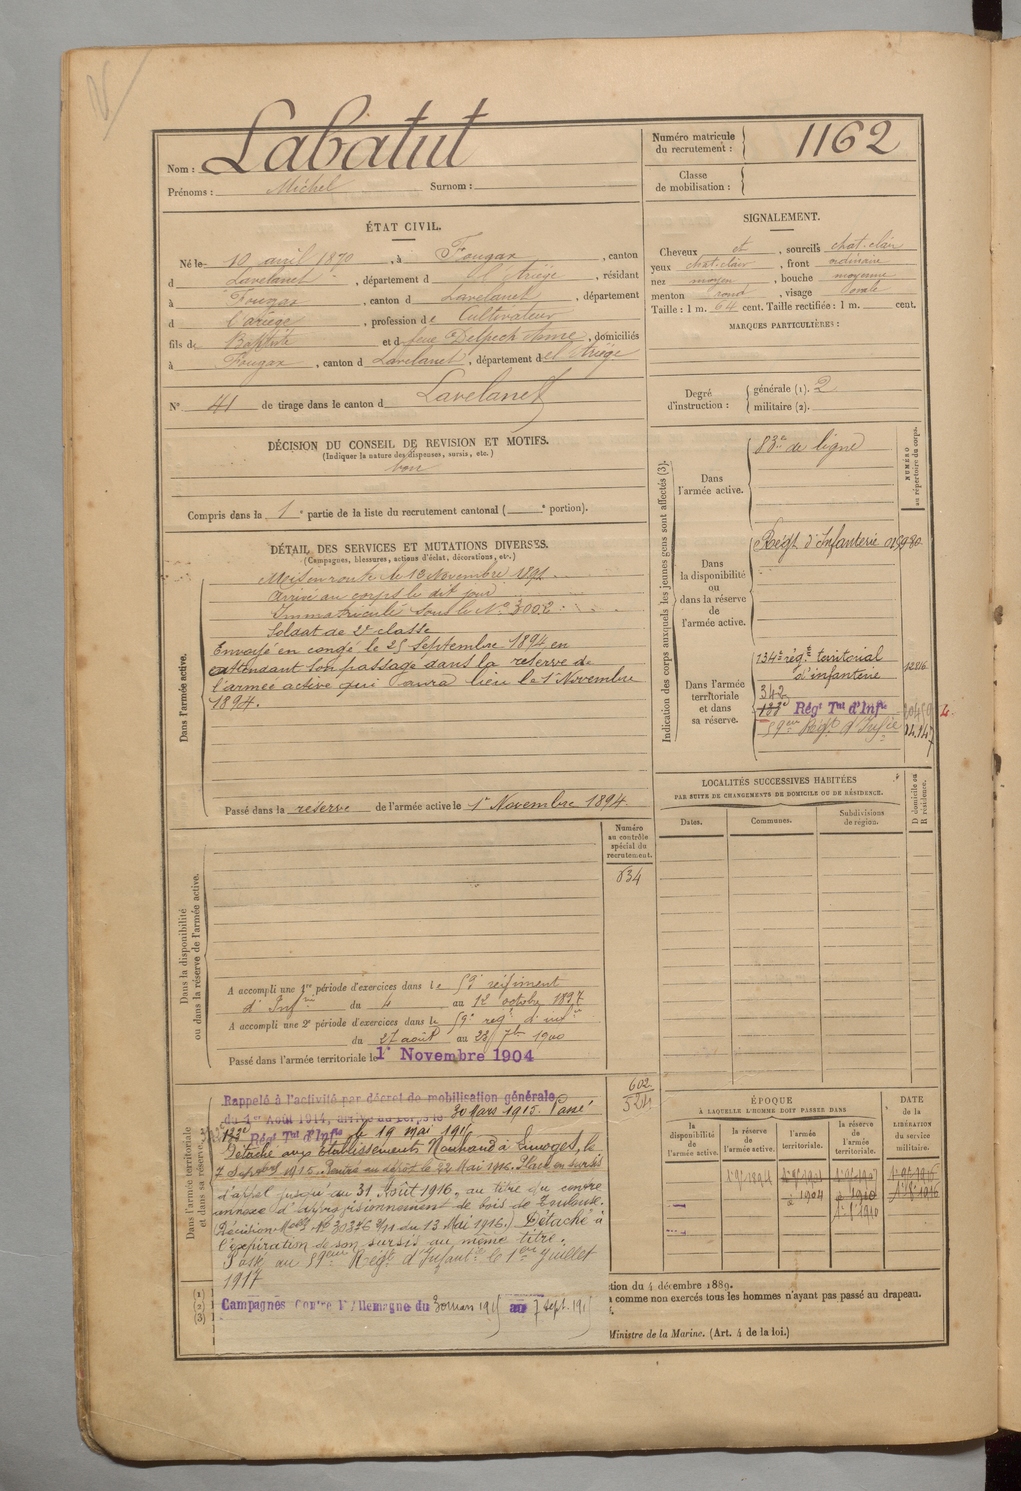 Nom : Labatut
Prénoms : Michel Surnom :
Numéro matricule du recrutement : 1162
Classe de mobilisation :
ÉTAT CIVIL.
Né le 10 avril 1870, à Fougax, canton
d Lavelanet, département d el'Ariège, résidant
à Fougax, canton d Lavelanet, département
d l'ariège, profession de Cultivateur
fils de Baptiste et d feue Delpech Anne, domiciliés
à Fougax, canton d Lavelanet, département d el'Ariège
N° 41 de tirage dans le canton d Lavelanet
SIGNALEMENT.
Cheveux et, sourcils chat. clair
yeux chat. clair, front ordinaire
nez moyen, bouche moyenne
menton rond, visage ovale
Taille : 1 m. 64 cent. Taille rectifiée : 1 m. cent.
MARQUES PARTICULIÈRES :
Degré d'instruction : générale (1). 2
militaire (2).
DÉCISION DU CONSEIL DE REVISION ET MOTIFS.
(Indiquer la nature des dispenses, sursis, etc.)
bon
Compris dans la 1e partie de la liste du recrutement cantonal ( e portion).
DÉTAIL DES SERVICES ET MUTATIONS DIVERSES.
(Campagnes, blessures, actions d'éclat, décorations, etc.)
Dans l'armée active.
Mis en route le 13 Novembre 1891
Arrivé au corps le dit jour
Immatriculé sous le N° 3002
Soldat de 2e classe
Envoyé en congé le 25 Septembre 1894 en
attendant son passage dans la réserve de
l'armée active qui aura lieu le 1er Novembre
1894.
Passé dans la reserve de l'armée active le 1er Novembre 1894
Indication des corps auxquels les jeunes gens sont affectés (3).
NUMÉRO au répertoire du corps.
Dans l'armée active.
83e de ligne
Dans la disponibilité ou dans la réserve de l'armée active.
Regt d'Infanterie
Dans l'armée territoriale et dans sa réserve.
134e rég.t territorial
d'infanterie
342
133e Régt Tal d'Infie
59eme Régt d'Infie
LOCALITÉS SUCCESSIVES HABITÉES
PAR SUITE DE CHANGEMENTS DE DOMICILE OU DE RÉSIDENCE.
Dates. Communes. Subdivisions de région. D domicile ou R résidence.
Dans la disponibilité ou dans la réserve de l'armée active.
Numéro au contrôle spécial du recrutement.
834
A accompli une 1re période d'exercices dans le 59e régiment
d'Infrie du 4 au 12 octobre 1897
A accompli une 2e période d'exercices dans le 59e regt d'infie
du 27 août au 23 7bre 1900
Passé dans l'armée territoriale le 1er Novembre 1904
Dans l'armée territoriale et dans sa réserve.
602
524
Rappelé à l'activité par décret de mobilisation générale
du 1er Août 1914, arrivé au corps le 30 Mars 1915. Passé
133e Régt Tal d'Infie le 19 mai 1915
Détaché aux Etablissements Nouhaud à Limoges, le
7 Septbre 1915. Rentré au dépôt le 22 Mai 1916. Placé en sursis
d'appel jusqu'au 31 Août 1916, au titre du centre
annexe d'approvisionnement de bois de Toulouse.
(Décision Melle N° 30376 9/11 du 13 Mai 1916.) Détaché à
l'expiration de son sursis au même titre.
Passé au 59eme Régt d'Infante le 1er Juillet
1917
Campagnes Contre l'Allemagne du 30 mars 1915 au 7 Sept. 1915
ÉPOQUE
À LAQUELLE L'HOMME DOIT PASSER DANS
la disponibilité de l'armée active. la réserve de l'armée active. l'armée territoriale. la réserve de l'armée territoriale.
DATE de la LIBÉRATION du service militaire.
(1)
(2)
(3)
tion du 4 décembre 1889.
a comme non exercés tous les hommes n'ayant pas passé au drapeau.
Ministre de la Marine. (Art. 4 de la loi.)